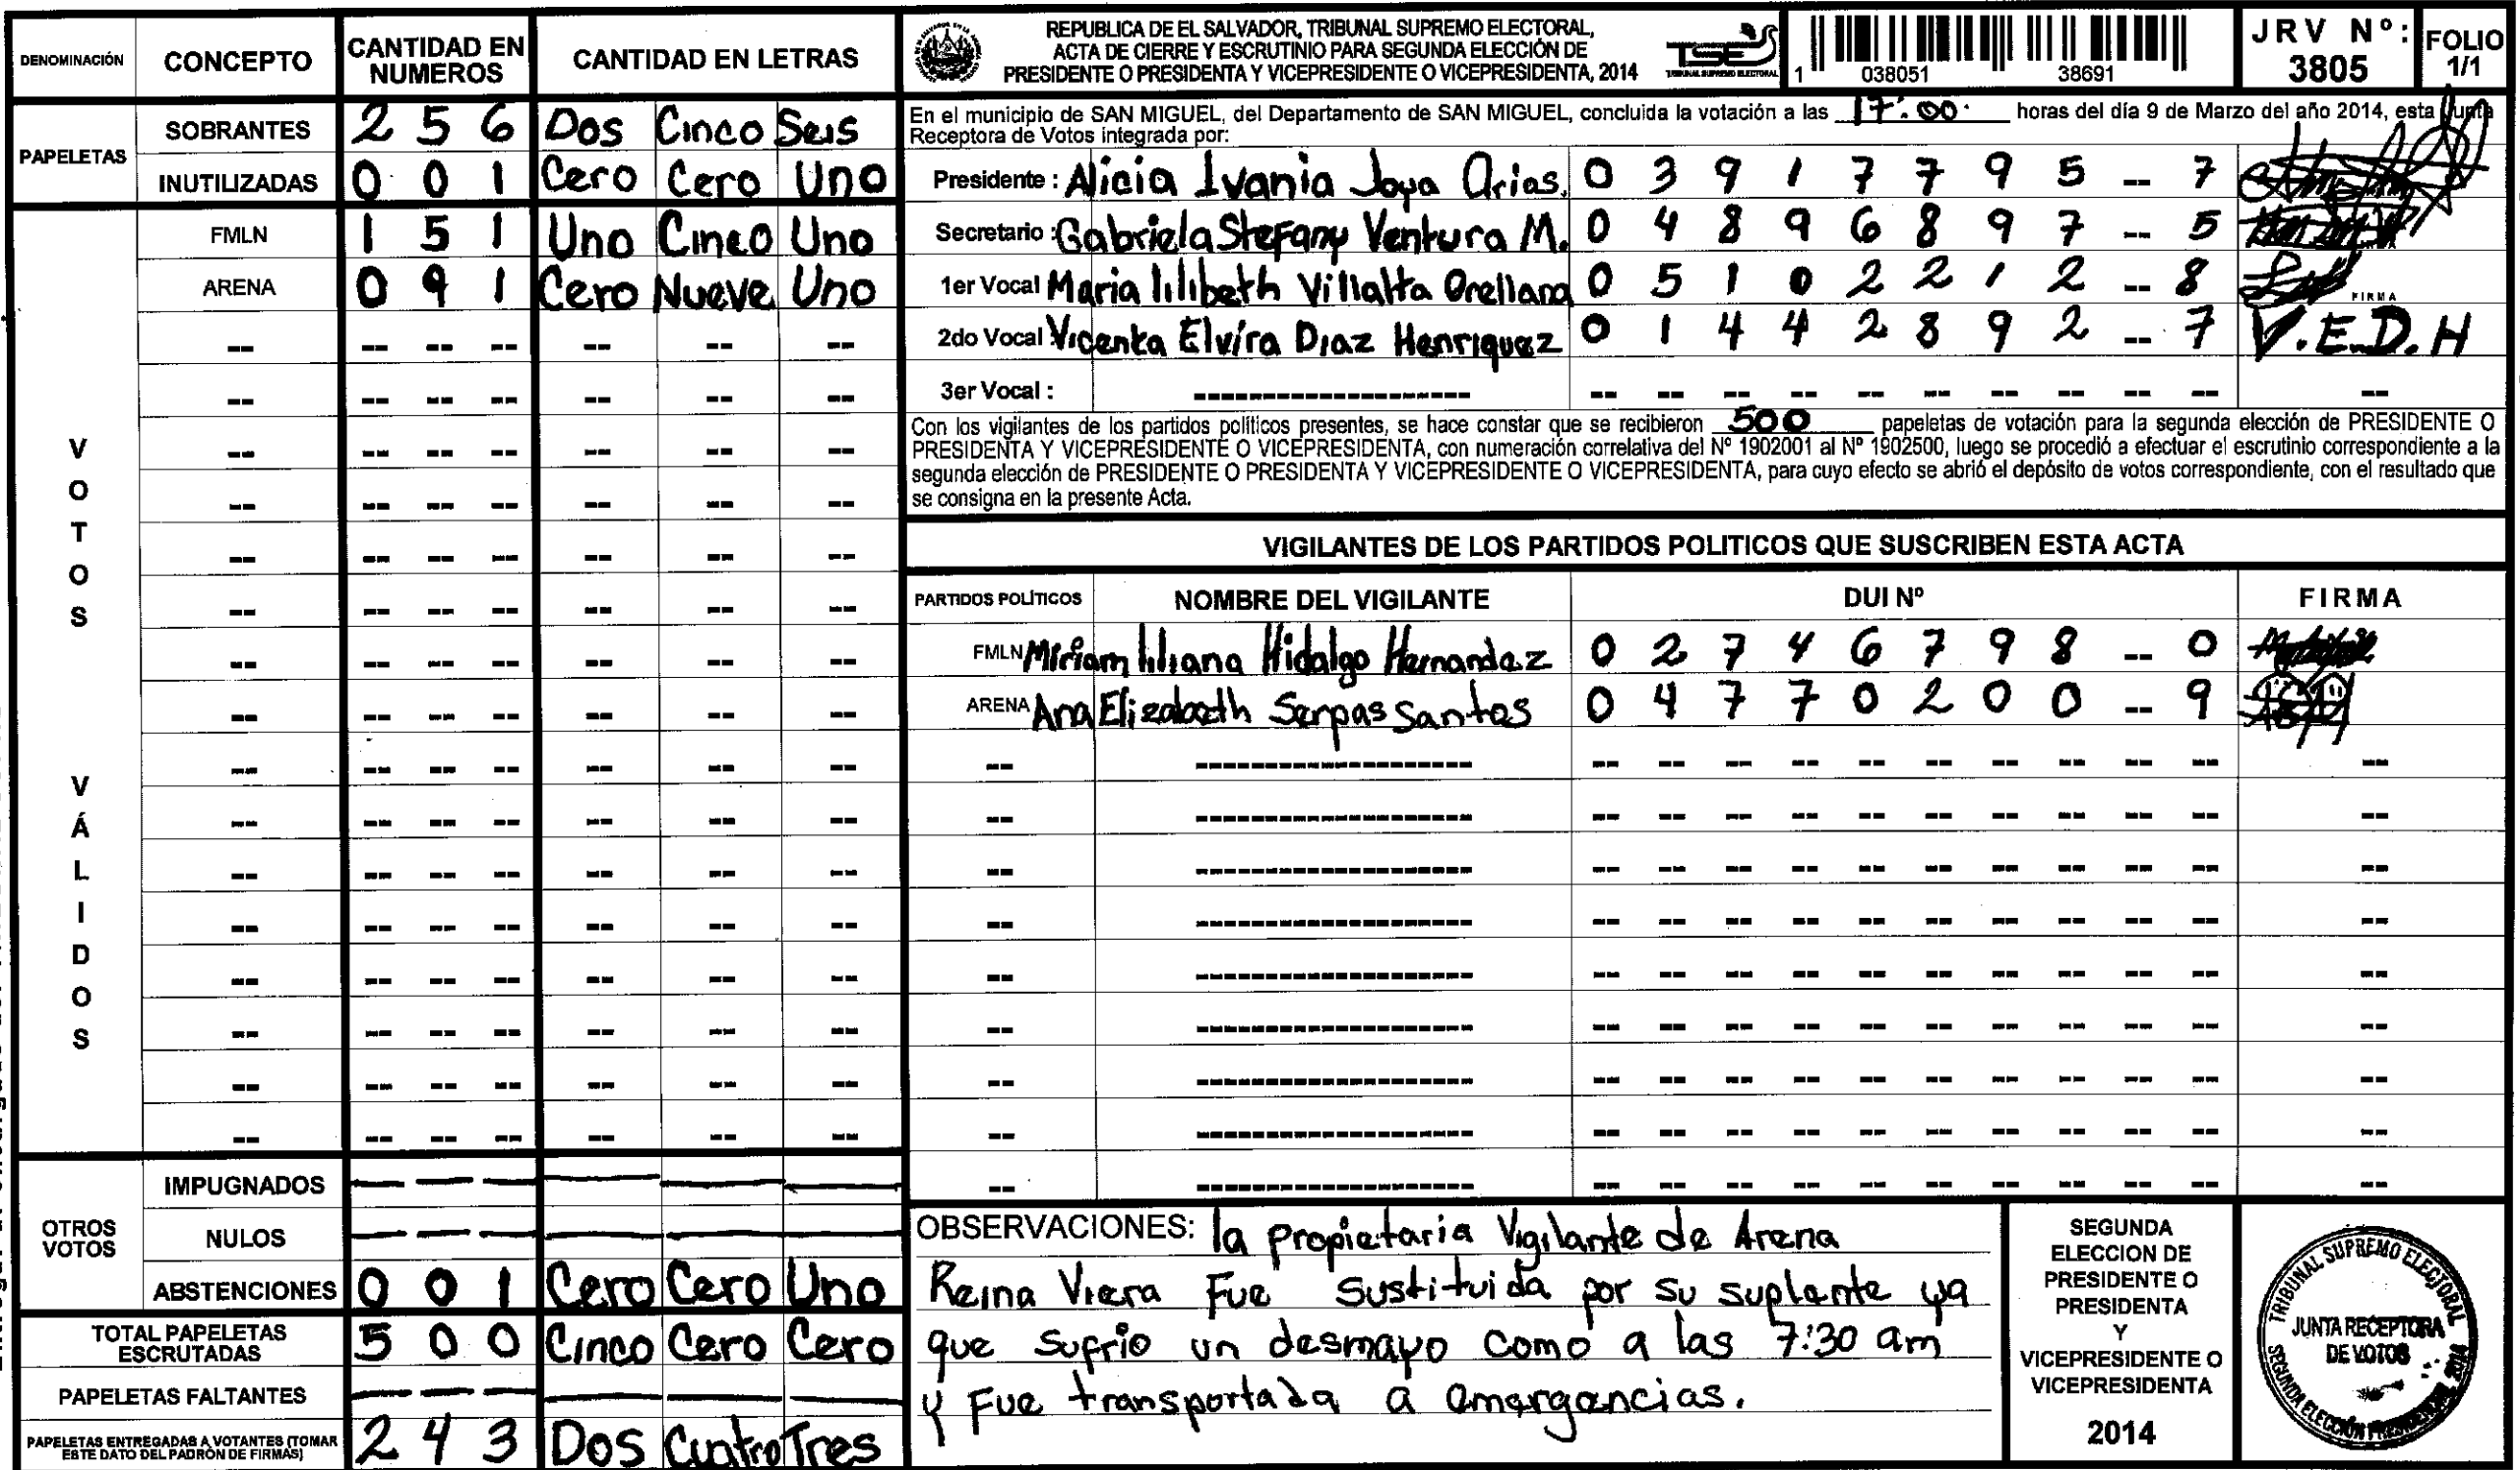 DENOMINACIÓN CONCEPTO CANTIDAD EN NUMEROS CANTIDAD EN LETRAS
PAPELETAS
SOBRANTES 2 5 6 Dos Cinco Seis
INUTILIZADAS 0 0 1 Cero Cero Uno
VOTOS VÁLIDOS
FMLN 1 5 1 Uno Cinco Uno
ARENA 0 9 1 Cero Nueve Uno
OTROS VOTOS
IMPUGNADOS
NULOS
ABSTENCIONES 0 0 1 Cero Cero Uno
TOTAL PAPELETAS ESCRUTADAS 5 0 0 Cinco Cero Cero
PAPELETAS FALTANTES
PAPELETAS ENTREGADAS A VOTANTES (TOMAR ESTE DATO DEL PADRÓN DE FIRMAS) 2 4 3 Dos Cuatro Tres
REPUBLICA DE EL SALVADOR, TRIBUNAL SUPREMO ELECTORAL,
ACTA DE CIERRE Y ESCRUTINIO PARA SEGUNDA ELECCIÓN DE
PRESIDENTE O PRESIDENTA Y VICEPRESIDENTE O VICEPRESIDENTA, 2014
TSE
TRIBUNAL SUPREMO ELECTORAL
1 038051 38691
JRV Nº: 3805
FOLIO 1/1
En el municipio de SAN MIGUEL, del Departamento de SAN MIGUEL, concluida la votación a las 17:00 horas del día 9 de Marzo del año 2014, esta Junta
Receptora de Votos integrada por:
Presidente : Alicia Ivania Joya Arias. 0 3 9 1 7 7 9 5 -- 7
Secretario : Gabriela Stefany Ventura M. 0 4 8 9 6 8 9 7 -- 5
1er Vocal Maria lilibeth Villalta Orellana 0 5 1 0 2 2 1 2 -- 8
FIRMA
2do Vocal Vicenta Elvira Diaz Henriquez 0 1 4 4 2 8 9 2 -- 7 V.E.D.H
3er Vocal :
Con los vigilantes de los partidos políticos presentes, se hace constar que se recibieron 500 papeletas de votación para la segunda elección de PRESIDENTE O
PRESIDENTA Y VICEPRESIDENTE O VICEPRESIDENTA, con numeración correlativa del Nº 1902001 al Nº 1902500, luego se procedió a efectuar el escrutinio correspondiente a la
segunda elección de PRESIDENTE O PRESIDENTA Y VICEPRESIDENTE O VICEPRESIDENTA, para cuyo efecto se abrió el depósito de votos correspondiente, con el resultado que
se consigna en la presente Acta.
VIGILANTES DE LOS PARTIDOS POLITICOS QUE SUSCRIBEN ESTA ACTA
PARTIDOS POLÍTICOS NOMBRE DEL VIGILANTE DUI Nº FIRMA
FMLN Miriam liliana Hidalgo Hernandez 0 2 7 4 6 7 9 8 -- 0
ARENA Ana Elizabeth Serpas Santos 0 4 7 7 0 2 0 0 -- 9
OBSERVACIONES: la propietaria Vigilante de Arena
Reina Viera Fue Sustituida por su suplente ya
que sufrio un desmayo como a las 7:30 am
y Fue transportada a emergencias.
SEGUNDA
ELECCION DE
PRESIDENTE O
PRESIDENTA
Y
VICEPRESIDENTE O
VICEPRESIDENTA
2014
TRIBUNAL SUPREMO ELECTORAL
JUNTA RECEPTORA
DE VOTOS
SEGUNDA ELECCIÓN PRESIDENCIAL 2014